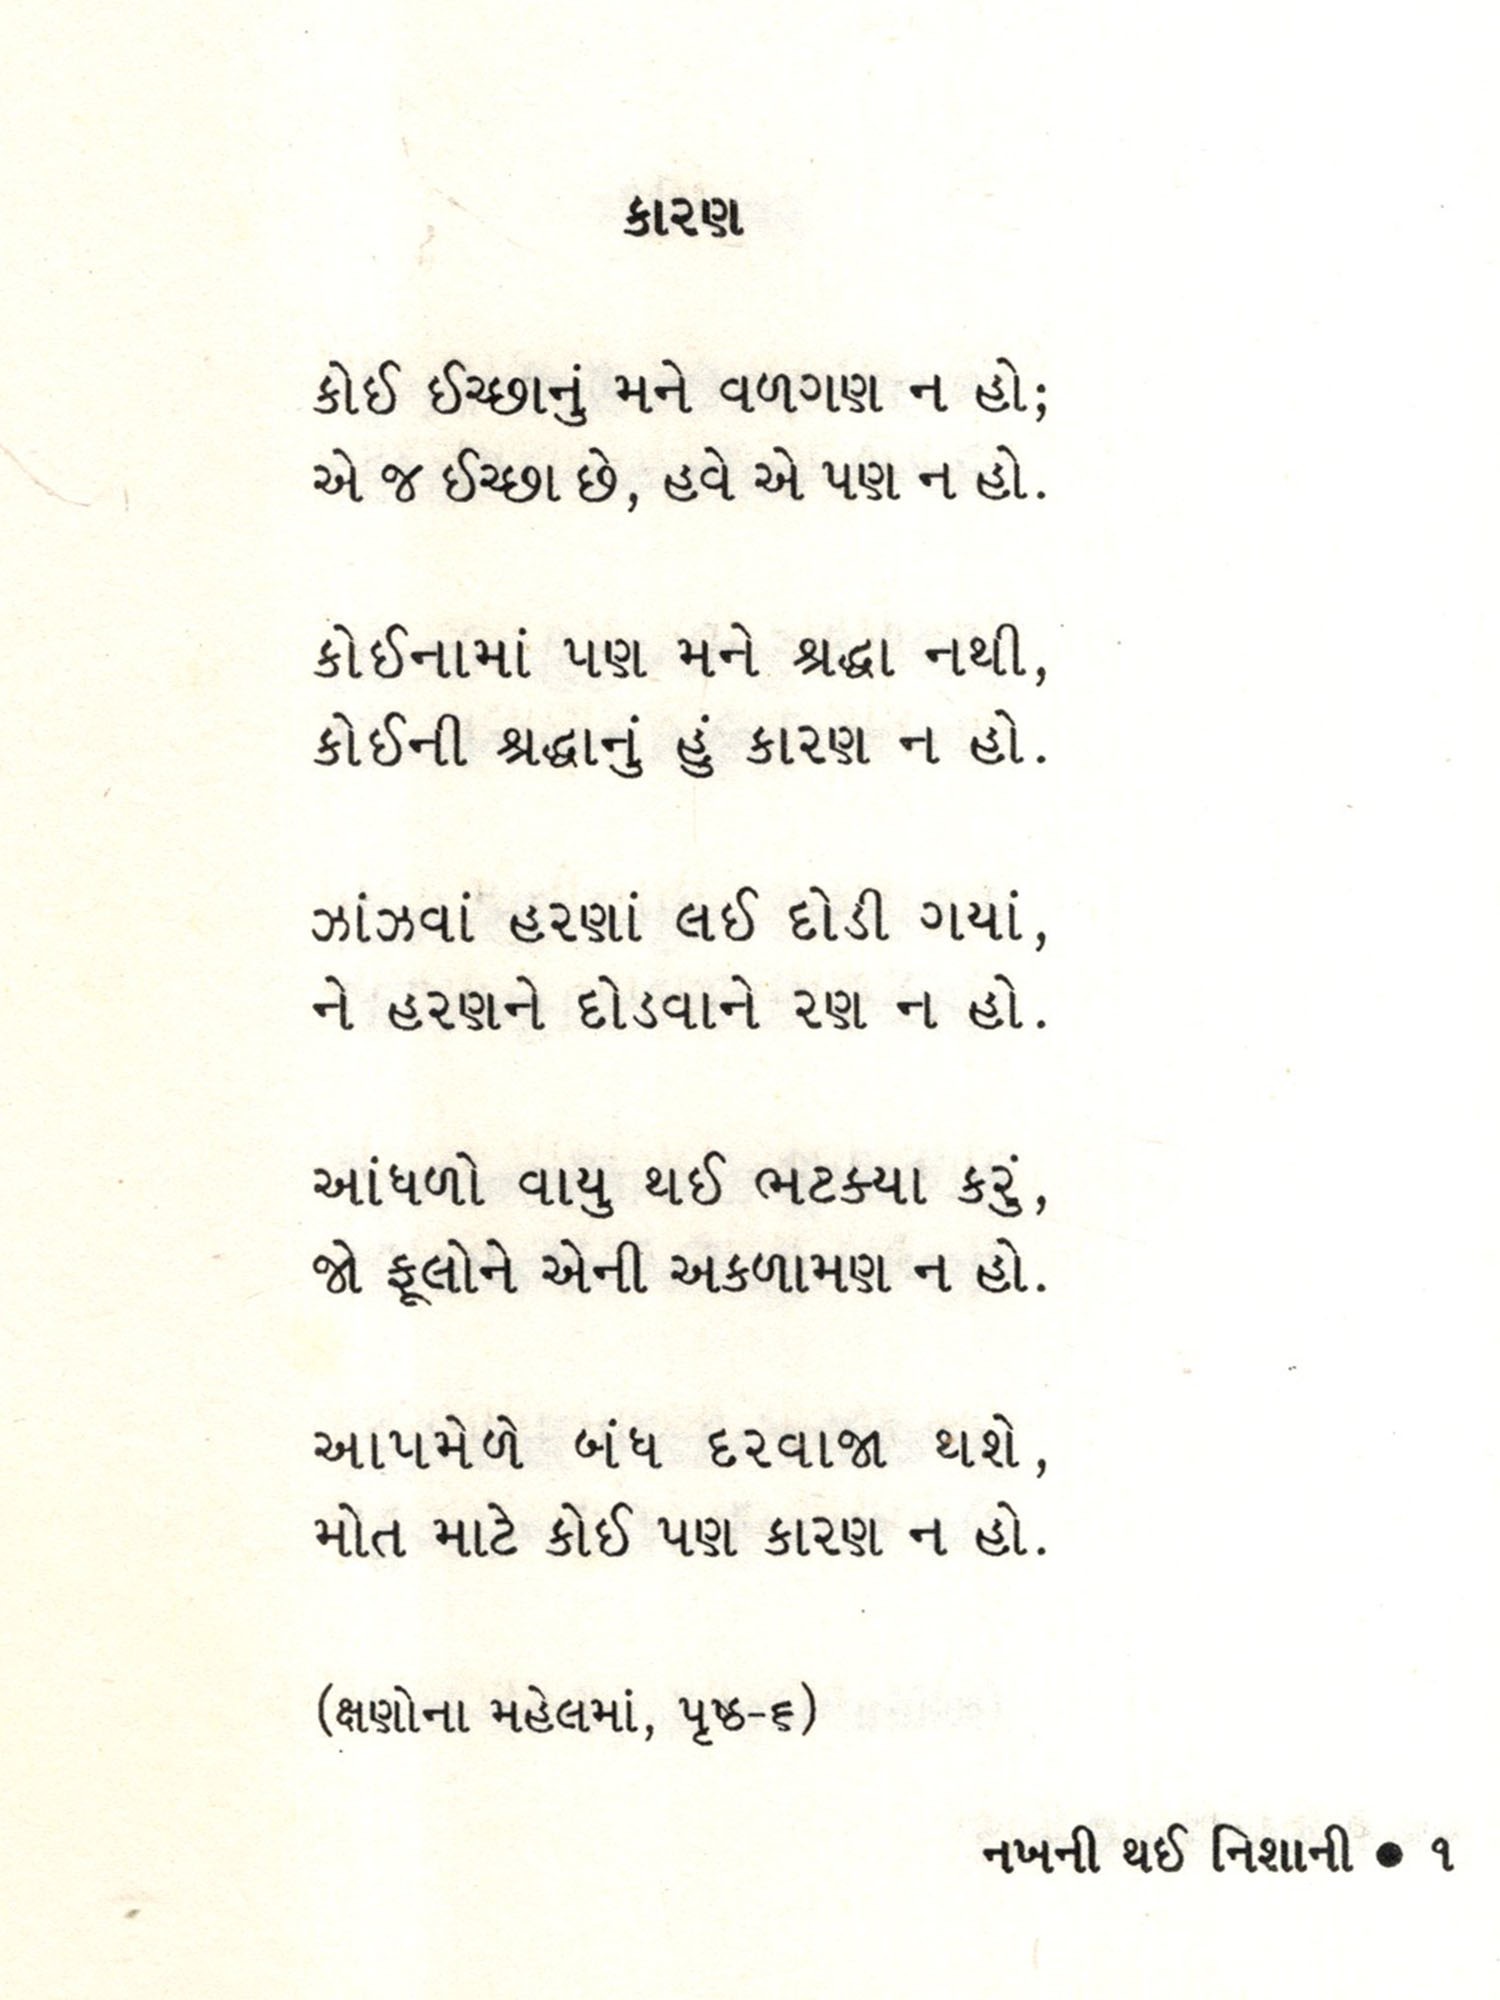 કારણ
કોઈ ઈચ્છાનું મને વળગણ ન હો;
એ જ ઈચ્છા છે, હવે એ પણ ન હો.
કોઈનામાં પણ મને શ્રદ્ધા નથી,
કોઈની શ્રદ્ધાનું હું કારણ ન હો.
ઝાંઝવાં હરણાં લઈ દોડી ગયાં,
ને હરણને દોડવાને રણ ન હો.
આંધળો વાયુ થઈ ભટક્યા કરું,
જો ફૂલોને એની અકળામણ ન હો.
આપમેળે બંધ દરવાજા થશે,
મોત માટે કોઈ પણ કારણ ન હો.
(ક્ષણોના મહેલમાં, પૃષ્ઠ-૬)
નખની થઈ નિશાની ● ૧